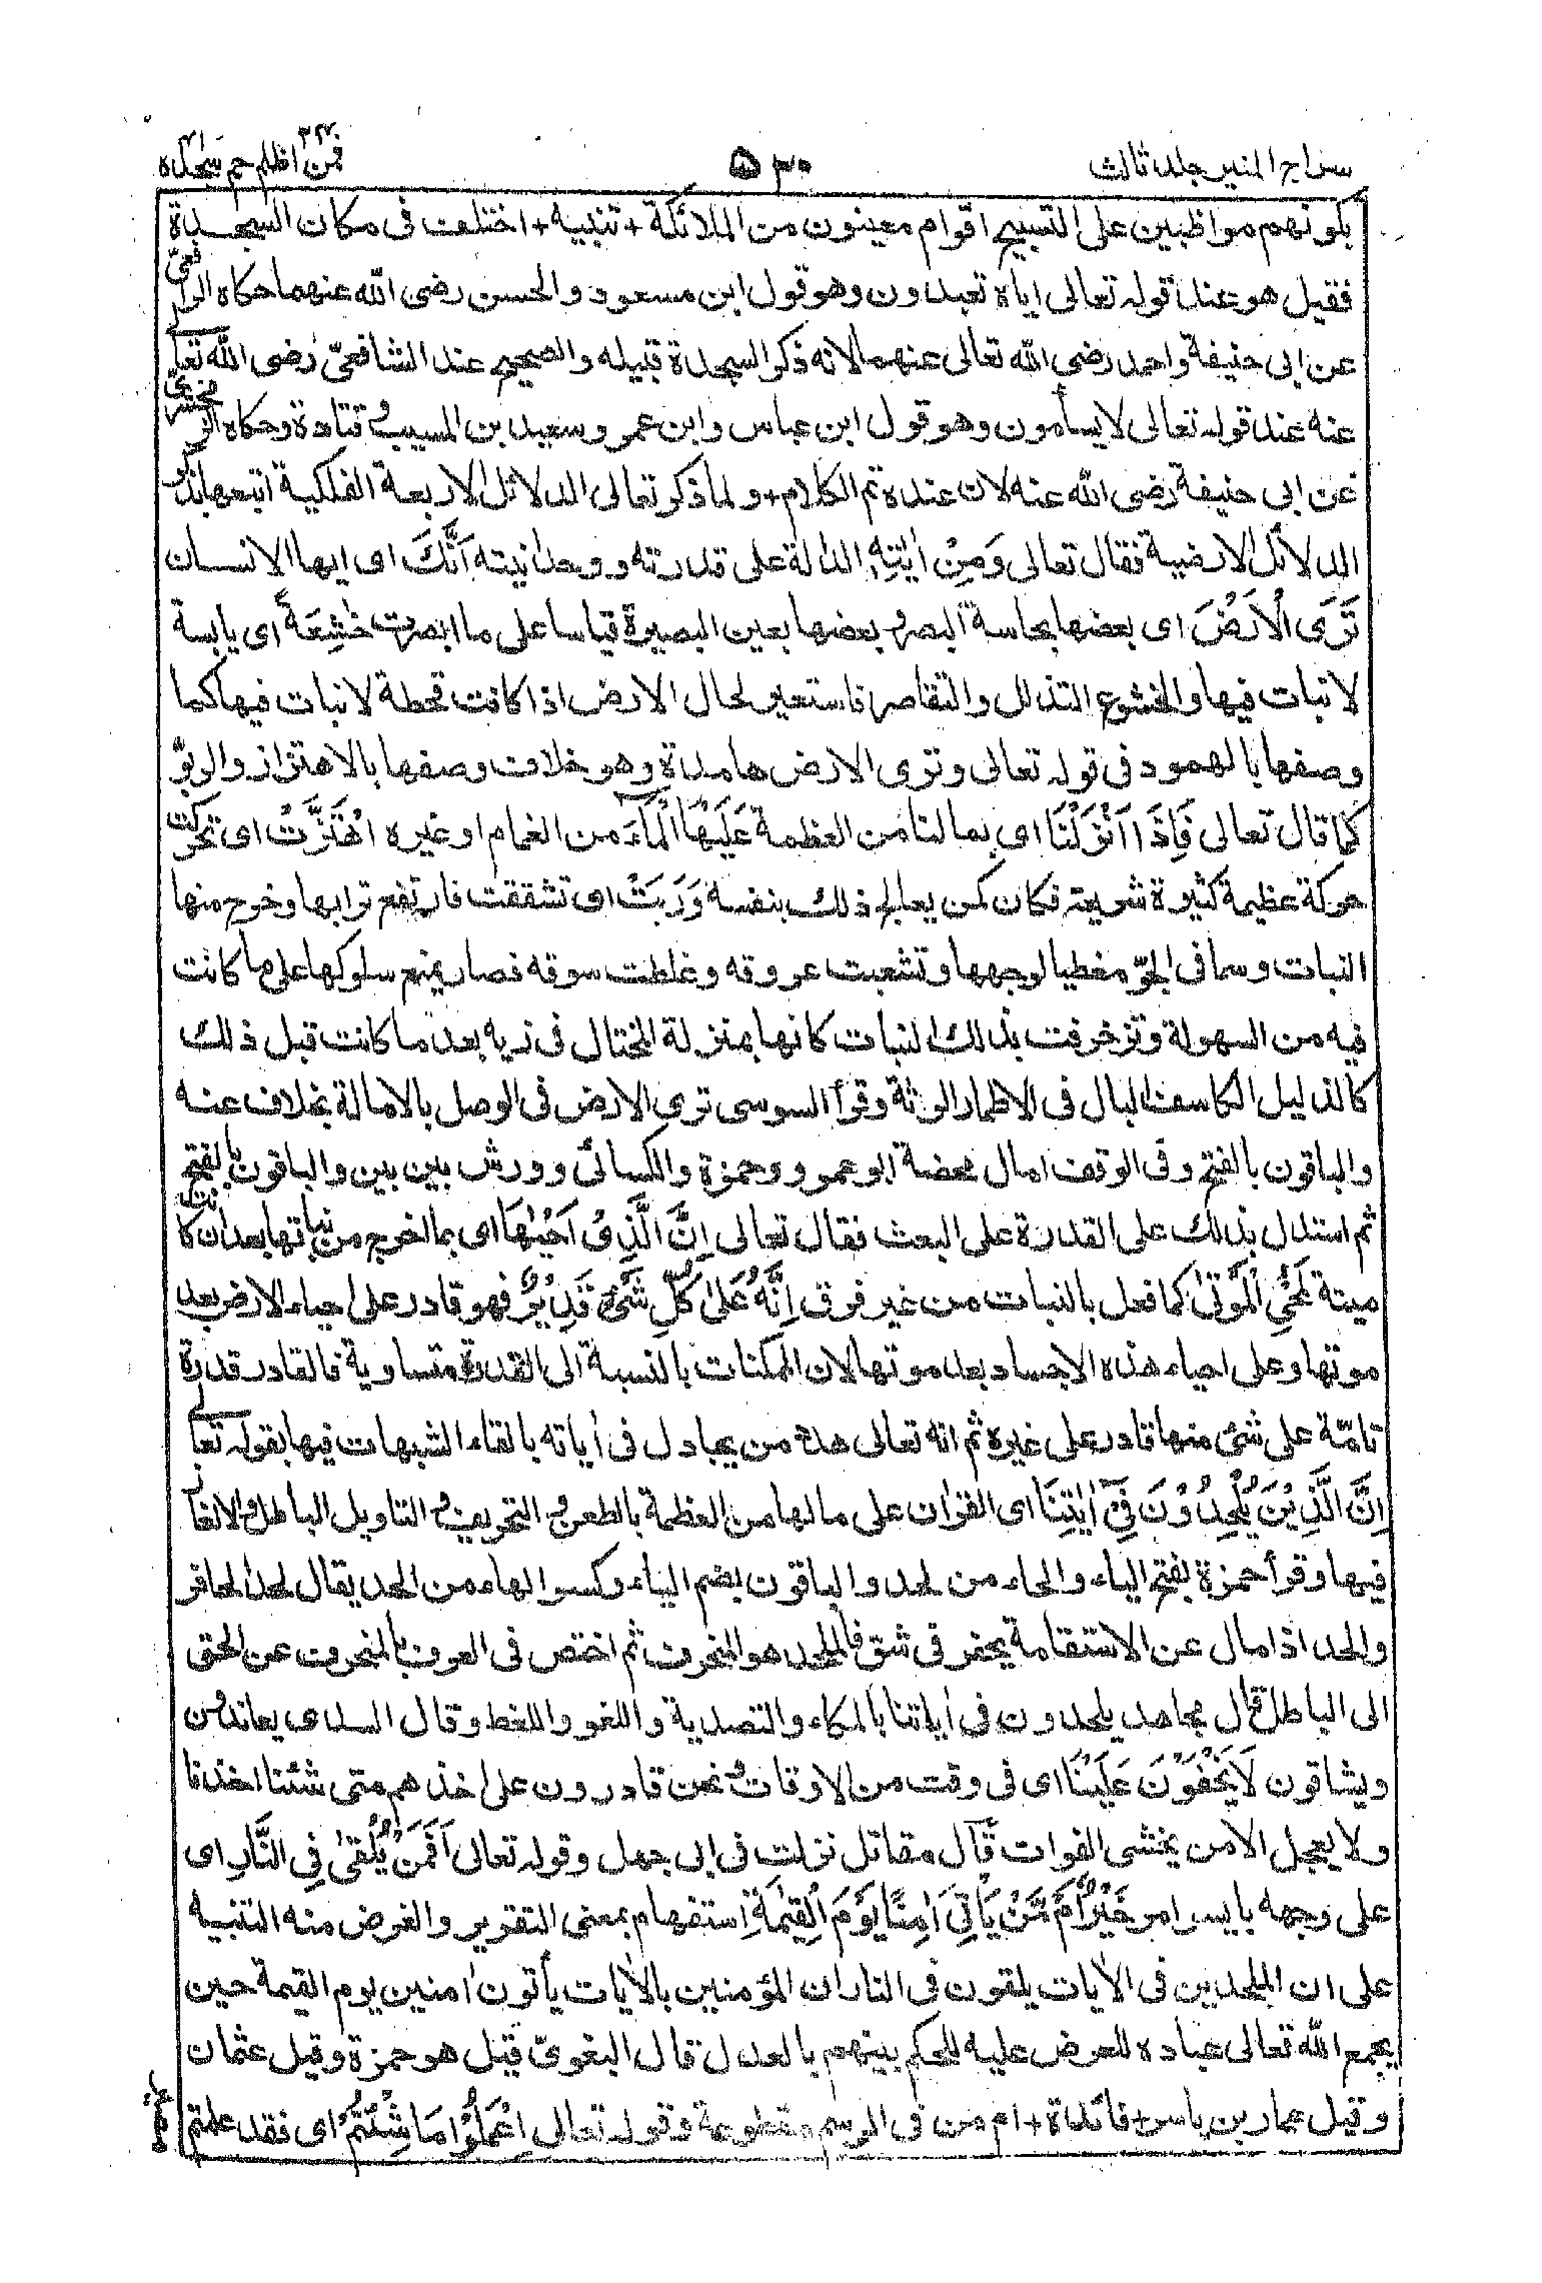 سراج المنير جلد ثالث
۵۳۰
فمن اظلم ۲۴ حم سجده ۴۱
بكونهم مواظبين على التسبيح اقوام معينون من الملائكة + تنبيه + اختلف فى مكان السجدة
فقيل هو عند قوله تعالى اياه تعبدون وهو قول ابن مسعود والحسن رضى الله عنهما حكاه الرافعىّ
عن ابى حنيفة واحمد رضى الله تعالى عنهما لانه ذكر السجدة قبيله والصحيح عند الشافعىّ رضى الله تعالى
عنه عند قوله تعالى لا يسأمون وهو قول ابن عباس وابن عمر وسعيد بن المسيب وقتادة وحكاه الزمخشرىّ
عن ابى حنيفة رضى الله عنه لان عنده تم الكلام + ولما ذكر تعالى الدلائل الاربعة الفلكية اتبعها بذكر
الدلائل الارضية فقال تعالى وَمِنْ اٰيٰتِهٖ الدالة على قدرته ووحدانيته اَنَّكَ اى ايها الانسان
تَرَى الْاَرْضَ اى بعضها بحاسة البصر وبعضها بعين البصيرة قياسا على ما ابصرت خٰشِعَةً اى يابسة
لا نبات فيها والخشوع التذلل والتقاصر فاستعير لحال الارض اذا كانت قحطة لا نبات فيها كما
وصفها بالهمود فى قوله تعالى وترى الارض هامدة وهو خلاف وصفها بالاهتزاز والربوّ
كما قال تعالى فَاِذَا اَنْزَلْنَا اى بما لنا من العظمة عَلَيْهَا الْمَآءَ من الغمام او غيره اهْتَزَّتْ اى تحركت
حركة عظيمة كثيرة سريعة فكان كمن يعالج ذلك بنفسه وَرَبَتْ اى تشققت فارتفع ترابها وخرج منها
النبات وسما فى الجوّ مغطيا لوجهها وتشعبت عروقه وغلظت سوقه فصار يمنع سلوكها على ما كانت
فيه من السهولة وتزخرفت بذلك النبات كانها بمنزلة المختال فى زيه بعد ما كانت قبل ذلك
كالذليل الكاسف البال فى الاطمار الرثة وقرأ السوسى ترى الارض فى الوصل بالامالة بخلاف عنه
والباقون بالفتح وفى الوقف امال محضة ابو عمرو وحمزة والكسائى وورش بين بين والباقون بالفتح
ثم استدل بذلك على القدرة على البعث فقال تعالى اِنَّ الَّذِىْ اَحْيٰهَا اى بما اخرج من نباتها بعد ان كانت
ميتة لَمُحْىِ الْمَوْتٰى كما فعل بالنبات من غير فرق اِنَّهٗ عَلٰى كُلِّ شَىْءٍ قَدِيْرٌ فهو قادر على احياء الارض بعد
موتها وعلى احياء هذه الاجساد بعد موتها لان الممكنات بالنسبة الى القدرة متساوية فالقادر قدرة
تامّة على شىء منها قادر على غيره ثم انه تعالى هدد من يجادل فى اٰياته بالقاء الشبهات فيها بقوله تعالى
اِنَّ الَّذِيْنَ يُلْحِدُوْنَ فِىْٓ اٰيٰتِنَا اى القرآن على ما لها من العظمة بالطعن والتحريف والتاويل الباطل والالغاء
فيها وقرأ حمزة بفتح الياء والحاء من لحد والباقون بضم الياء وكسر الحاء من الحد يقال لحد الحافر
والحد اذا مال عن الاستقامة يحفر فى شق فالملحد هو المنحرف ثم اختص فى العرف بالمنحرف عن الحق
الى الباطل قال مجاهد يلحدون فى اٰياتنا بالمكاء والتصدية واللغو واللغط وقال السدى يعاندون
ويشاقون لَا يَخْفَوْنَ عَلَيْنَا اى فى وقت من الاوقات ونحن قادرون على اخذهم متى شئنا اخذنا
ولا يعجل الا من يخشى الفوات قال مقاتل نزلت فى ابى جهل وقوله تعالى اَفَمَنْ يُّلْقٰى فِى النَّارِ اى
على وجهه بايسر امر خَيْرٌ اَمْ مَّنْ يَّاْتِىْٓ اٰمِنًا يَّوْمَ الْقِيٰمَةِ استفهام بمعنى التقرير والغرض منه التنبيه
على ان الملحدين فى الاٰيات يلقون فى النار وان المؤمنين بالاٰيات يأتون اٰمنين يوم القيمة حين
يجمع الله تعالى عباده للعرض عليه للحكم بينهم بالعدل قال البغوىّ قيل هو حمزة وقيل عثمان
وقيل عمار بن ياسر + فائدة + ام من فى الرسم مقطوعة وقوله تعالى اِعْمَلُوْا مَا شِئْتُمْ اى فقد علمتم